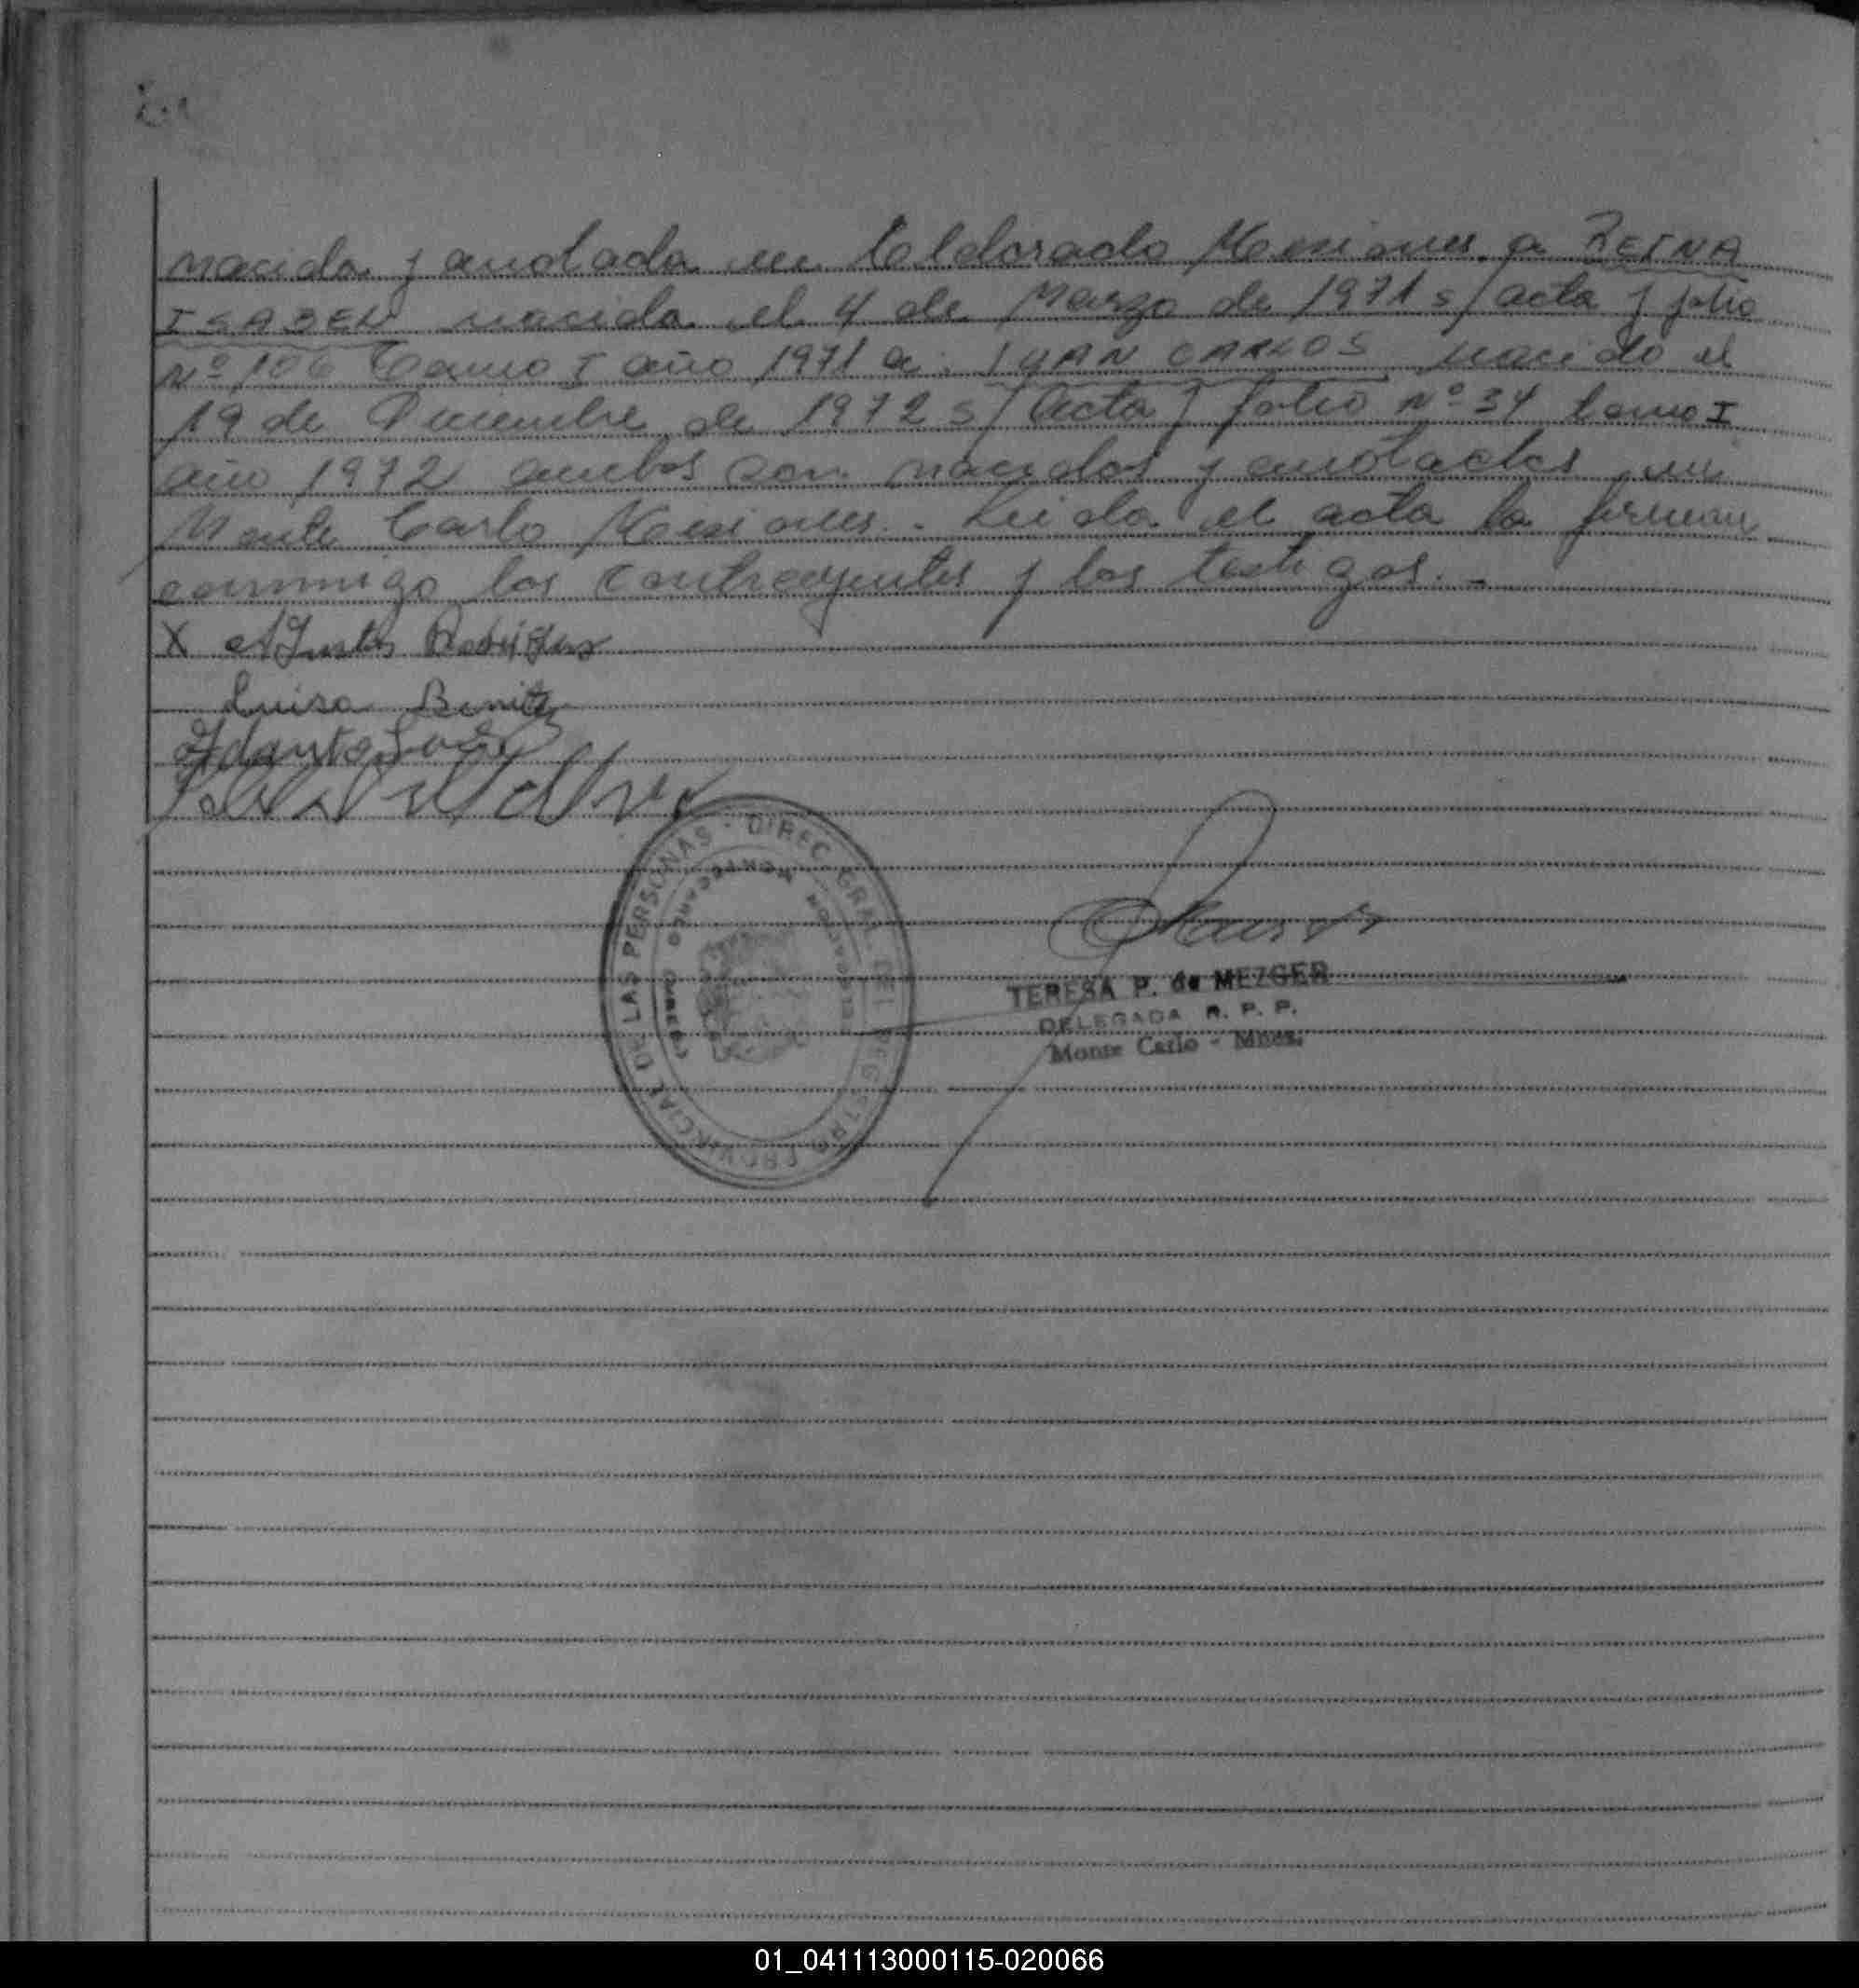 nacida y anotada en Eldorado Misiones. a REINA
ISABEL nacida el 4 de Marzo de 1971 s/ acta y folio
Nº 106 Tomo I año 1971 a: JUAN CARLOS nacido el
19 de Diciembre de 1972 s/ Acta y folio Nº 34 tomo I
año 1972 ambos son nacidos y anotados en
Monte Carlo Misiones. Leida el acta la firman
conmigo los contrayentes y los testigos. -
X Justo Rodriguez
Luisa Benitez
DIREC. GRAL. DEL REGISTRO PROVINCIAL DE LAS PERSONAS
DELEGACION MONTECARLO
TERESA P. de MEZGER
DELEGADA R. P. P.
Monte Carlo - Mnes.
01_041113000115-020066